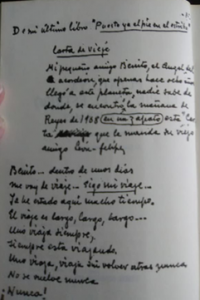 De mi último libro "Puesto ya el pie en el estribo"
Carta de viaje
Mi pequeño amigo Benito, el Ángel
que apenas hace ocho
llegó a este planeta, nadie sabe de
donde, se encontró la mañana de
Reyes de 1968 (en un zapato) esta Car
ta que le manda su viejo
amigo León-Felipe,
Benito... dentro de unos días
me voy de viaje... Sigo mi viaje...
Ya he estado aquí mucho tiempo.
El viaje es largo, largo, largo...
Uno viaja siempre,
siempre está viajando.
Uno viaja, viaja sin volver atrás nunca
No se vuelve nunca
¡Nunca!